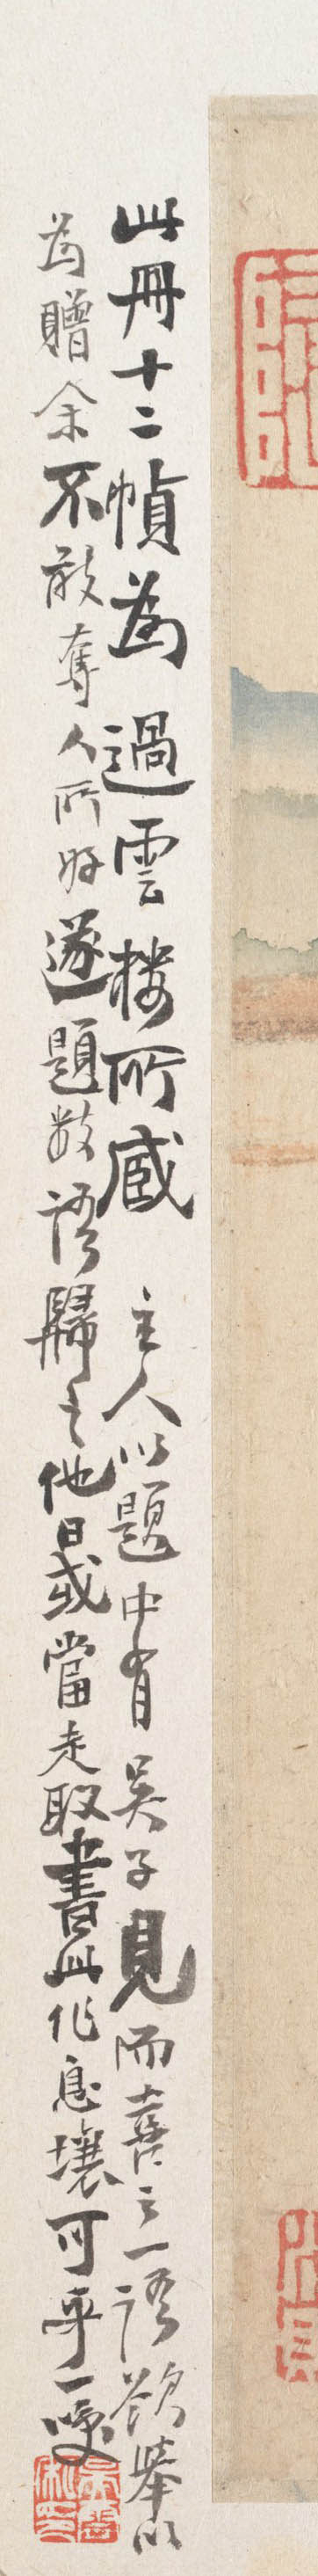 此冊十二幀為過雲樓所藏主人以題中有吳子見而喜之一語欲舉以
為贈余不敢奪人所好遂題數語歸之他日或當走取書此作息壤可乎一噱